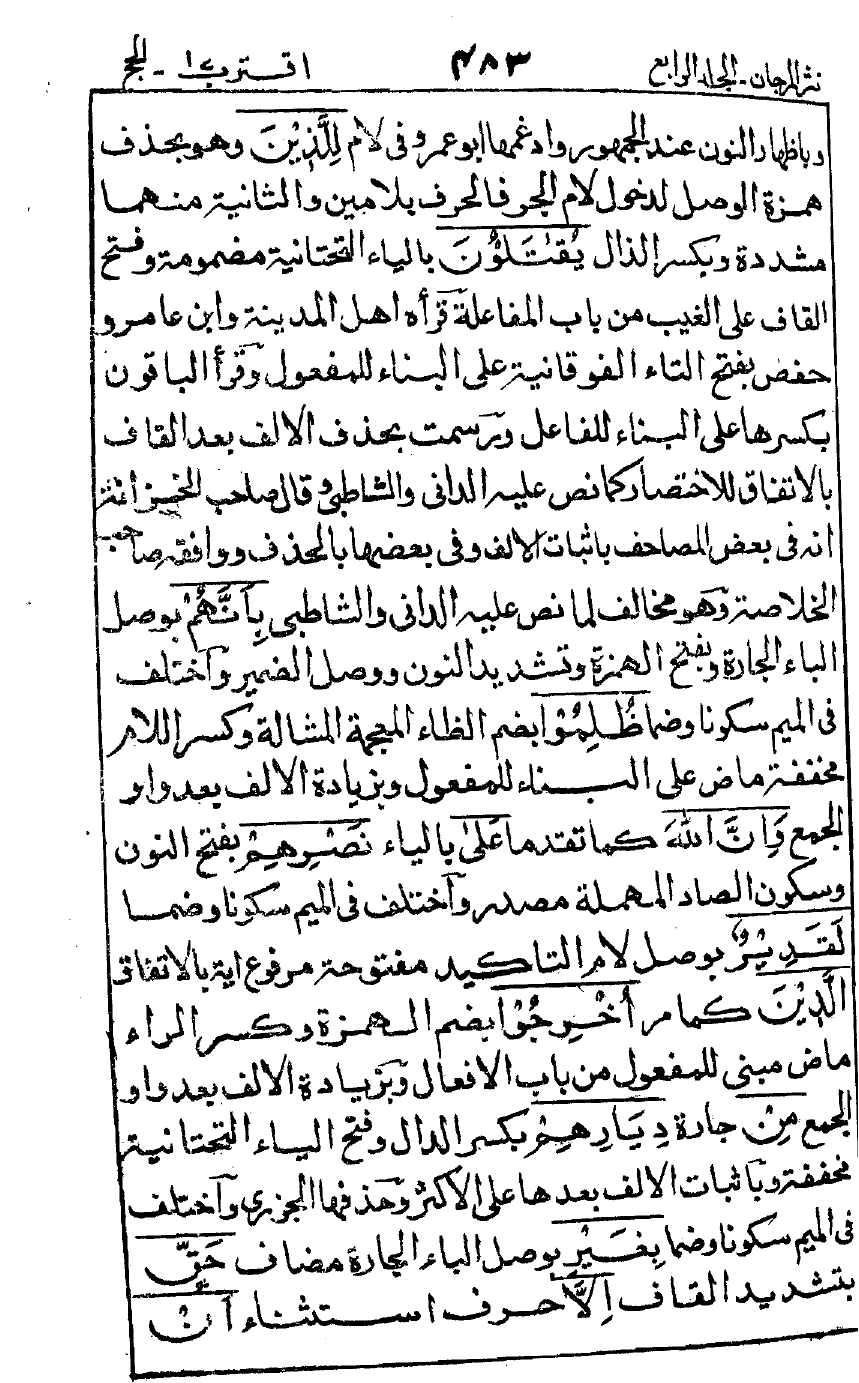 نثر المرجان - الجلد الرابع ٤٨٣ اقترب ١٧ - الحج
وباظهار النون عند الجمهور وادغمها ابو عمرو فى لام لِلَّذِيْنَ وهو بحذف
همزة الوصل لدخول لام الجر فالحرف بلامين والثانية منهما
مشددة وبكسر الذال يُقٰتَلُوْنَ بالياء التحتانية مضمومة وفتح
القاف على الغيب من باب المفاعلة قرأه اهل المدينة وابن عامر و
حفص بفتح التاء الفوقانية على البناء للمفعول وقرأ الباقون
بكسرها على البناء للفاعل ورسمت بحذف الالف بعد القاف
بالاتفاق للاختصار كما نص عليه الدانى والشاطبى قال صاحب الخزانة
انه فى بعض المصاحف باثبات الالف وفى بعضها بالحذف ووافقه صاحب
الخلاصة وهو مخالف لما نص عليه الدانى والشاطبى بِاَنَّهُمْ بوصل
الباء الجارة وبفتح الهمزة وتشديد النون ووصل الضمير واختلف
فى الميم سكونا وضما ظُلِمُوْا بضم الظاء المعجمة المشالة وكسر اللام
مخففة ماض على البناء للمفعول وبزيادة الالف بعد واو
الجمع وَاِنَّ اللهَ كما تقدما عَلٰى بالياء نَصْرِهِمْ بفتح النون
وسكون الصاد المهملة مصدر واختلف فى الميم سكونا وضما
لَقَدِيْرٌ بوصل لام التاكيد مفتوحة مرفوع اية بالاتفاق
الَّذِيْنَ كما مر اُخْرِجُوْا بضم الهمزة وكسر الراء
ماض مبنى للمفعول من باب الافعال وبزيادة الالف بعد واو
الجمع مِنْ جارة دِيَارِهِمْ بكسر الدال وفتح الياء التحتانية
مخففة وباثبات الالف بعدها على الاكثر وحذفها الجزرى واختلف
فى الميم سكونا وضما بِغَيْرِ بوصل الباء الجارة مضاف حَقٍّ
بتشديد القاف اِلَّا حرف استثناء اَنْ